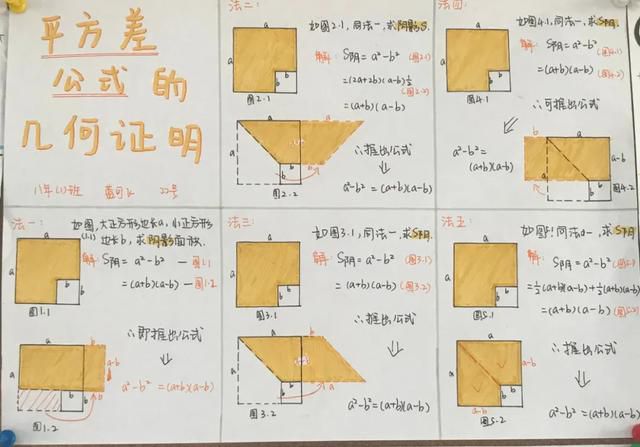 平方差
公式的
几何证明
八年(1)班
22号
法二:
如图2.1,同法一,求阴影S.
解: S阴=a²-b² (图2.1)
=(2a+2b)(a-b)½ (图2.2)
=(a+b)(a-b)
a
a
b
b
图2.1
∴推出公式
a²-b²=(a+b)(a-b)
a
b
b
图2.2
法四:
如图4.1,同法一,求S阴.
解: S阴=a²-b² (图4.1)
=(a+b)(a-b) (图4.2)
a
a
b
b
图4.1
∴可推出公式
a²-b²=
(a+b)(a-b)
b
a
a-b
b
b
图4.2
法一:
如图,大正方形边长a,小正方形
(1.1)
边长b,求阴影面积.
解: S阴=a²-b² — 图1.1
=(a+b)(a-b) — 图1.2
a
a
b
b
图1.1
∴即推出公式
a²-b²=(a+b)(a-b)
a
b
a
a-b
b
b
图1.2
法三:
如图3.1,同法一,求S阴.
解: S阴=a²-b² (图3.1)
=(a+b)(a-b) (图3.2)
a
a
b
b
图3.1
∴推出公式
a²-b²=(a+b)(a-b)
a
b
a
b
b
图3.2
法五:
解:
S阴=a²-b²
=½(a+b)(a-b)+½(a+b)(a-b)
=(a+b)(a-b) (图5.2)
a
a
b
b
图5.1
∴推出公式
a²-b²=(a+b)(a-b)
a
a-b
b
b
a-b
图5.2